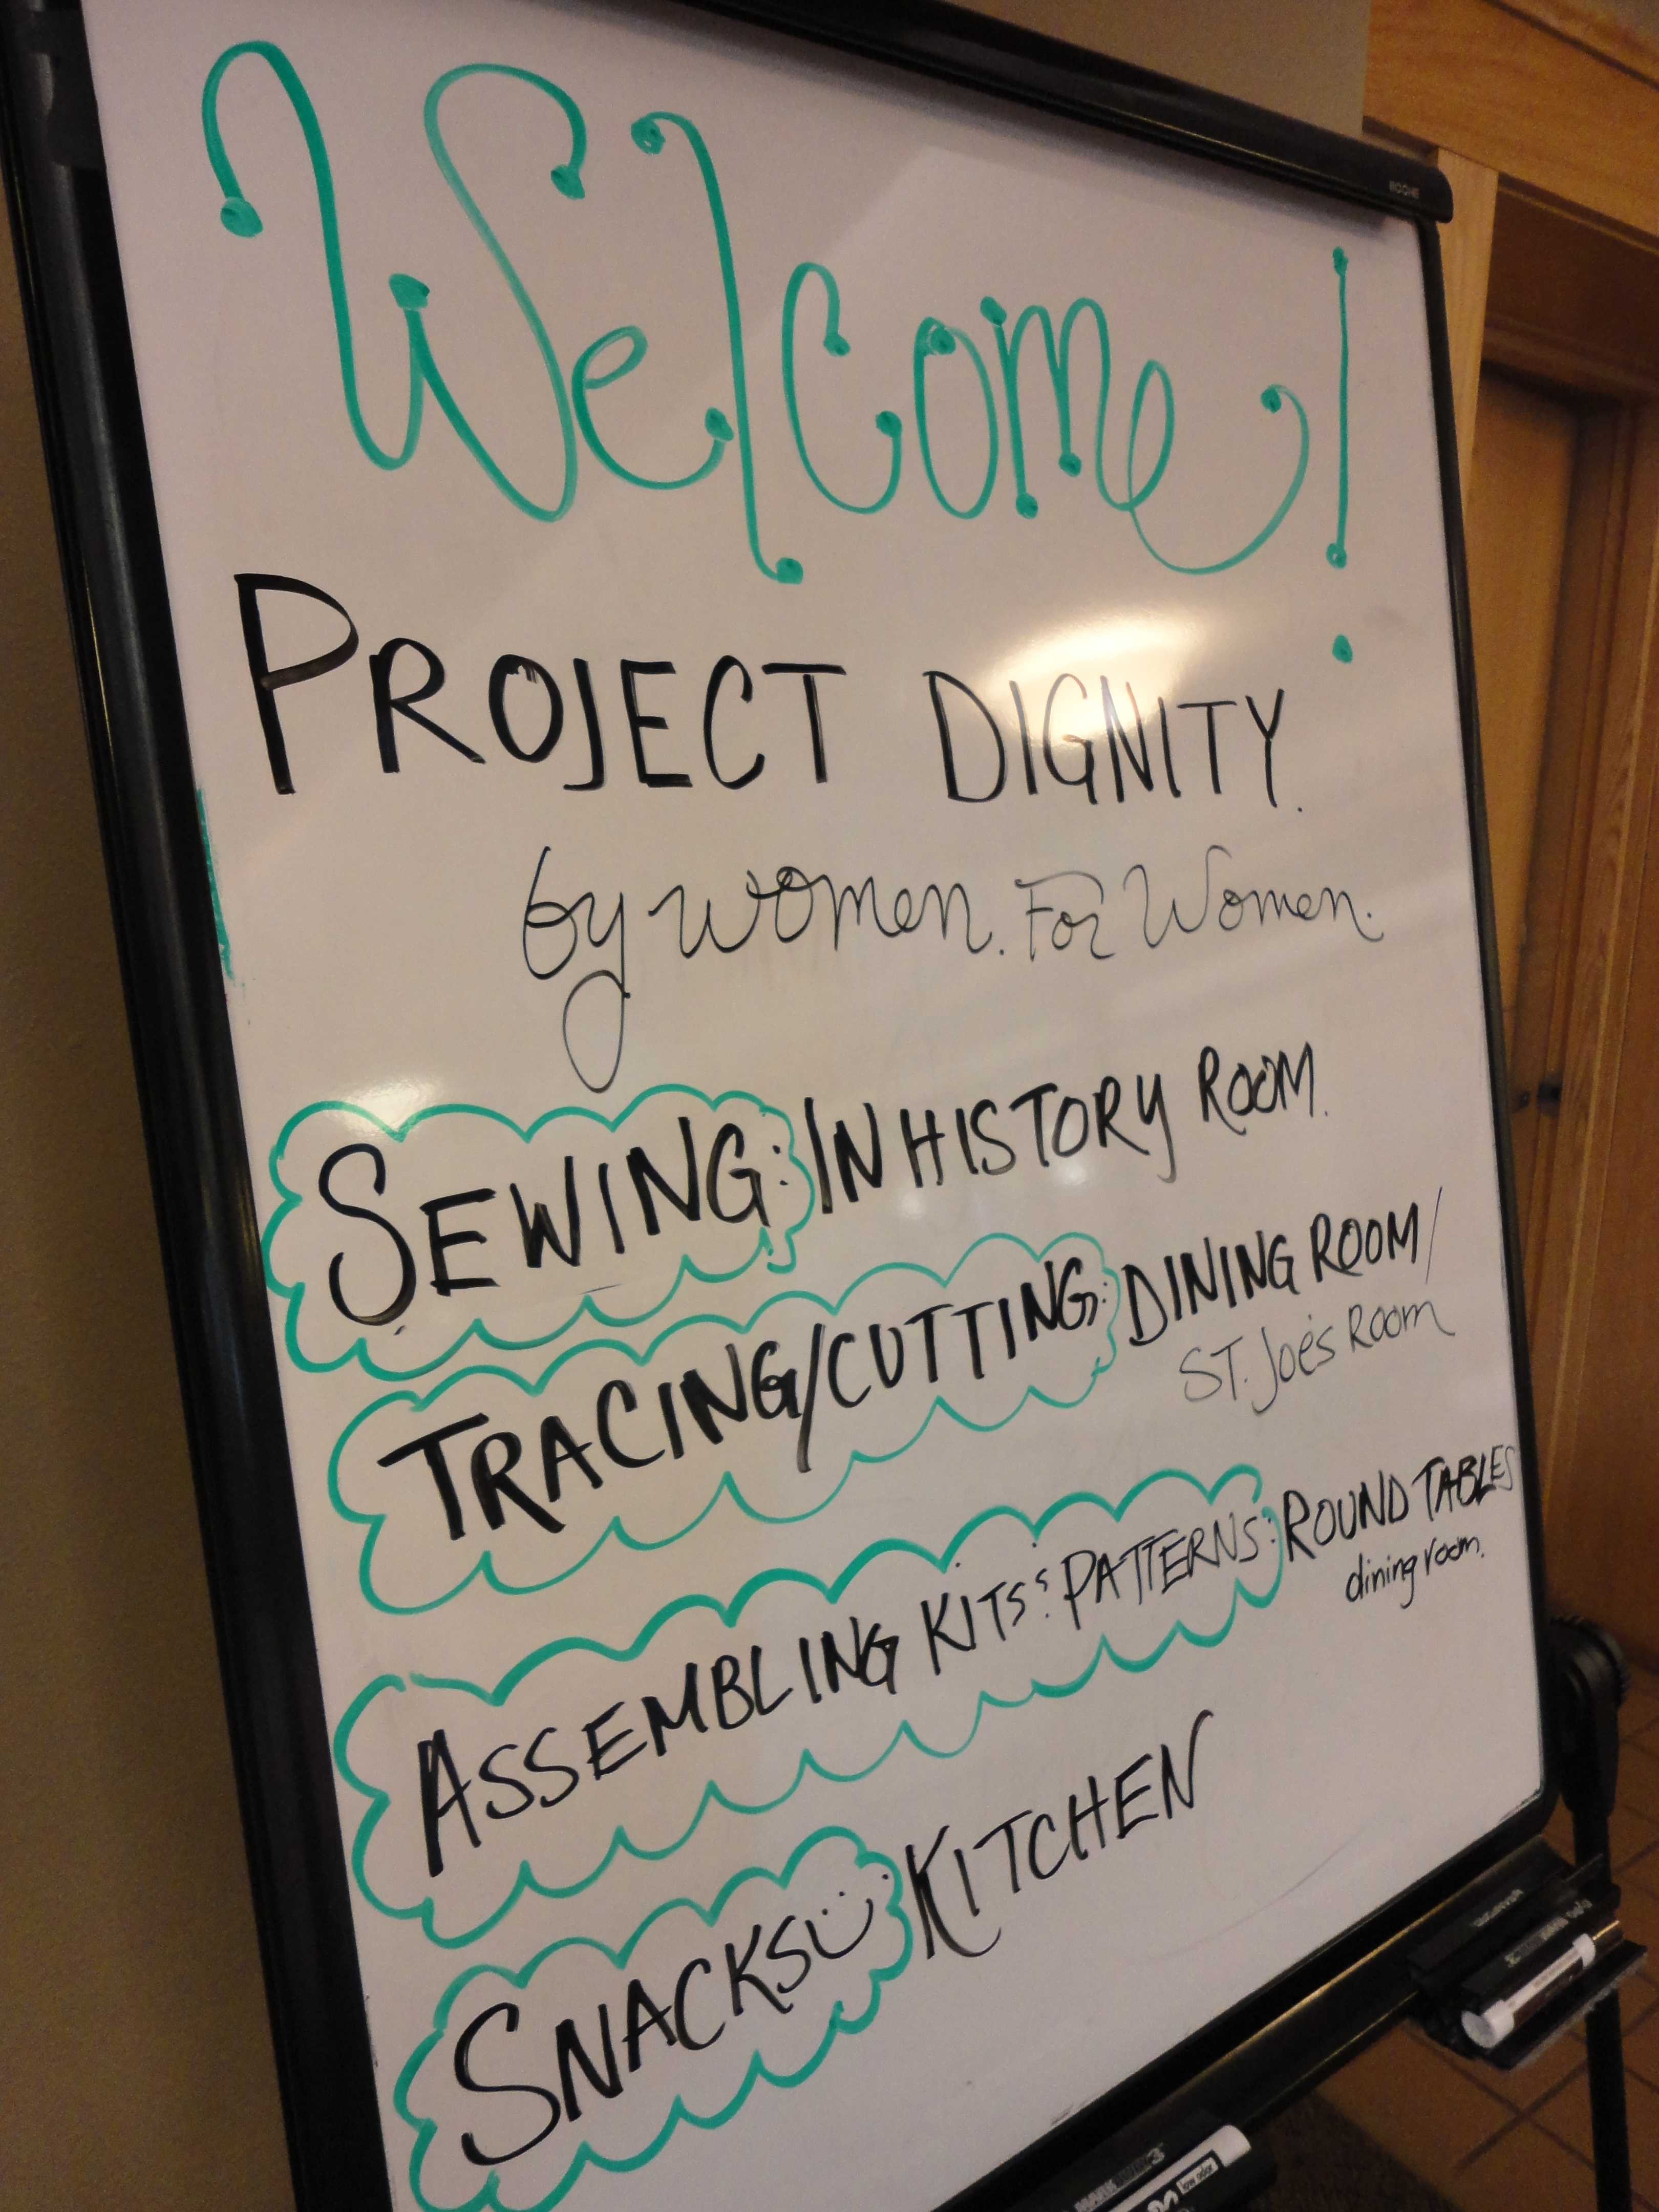 Welcome!
PROJECT DIGNITY.
by women. For Women.
SEWING: IN HISTORY ROOM.
TRACING/CUTTING: DINING ROOM/
ST. Joe's Room
ASSEMBLING KITS: PATTERNS: ROUND TABLES
dining room.
SNACKS: KITCHEN
low odor